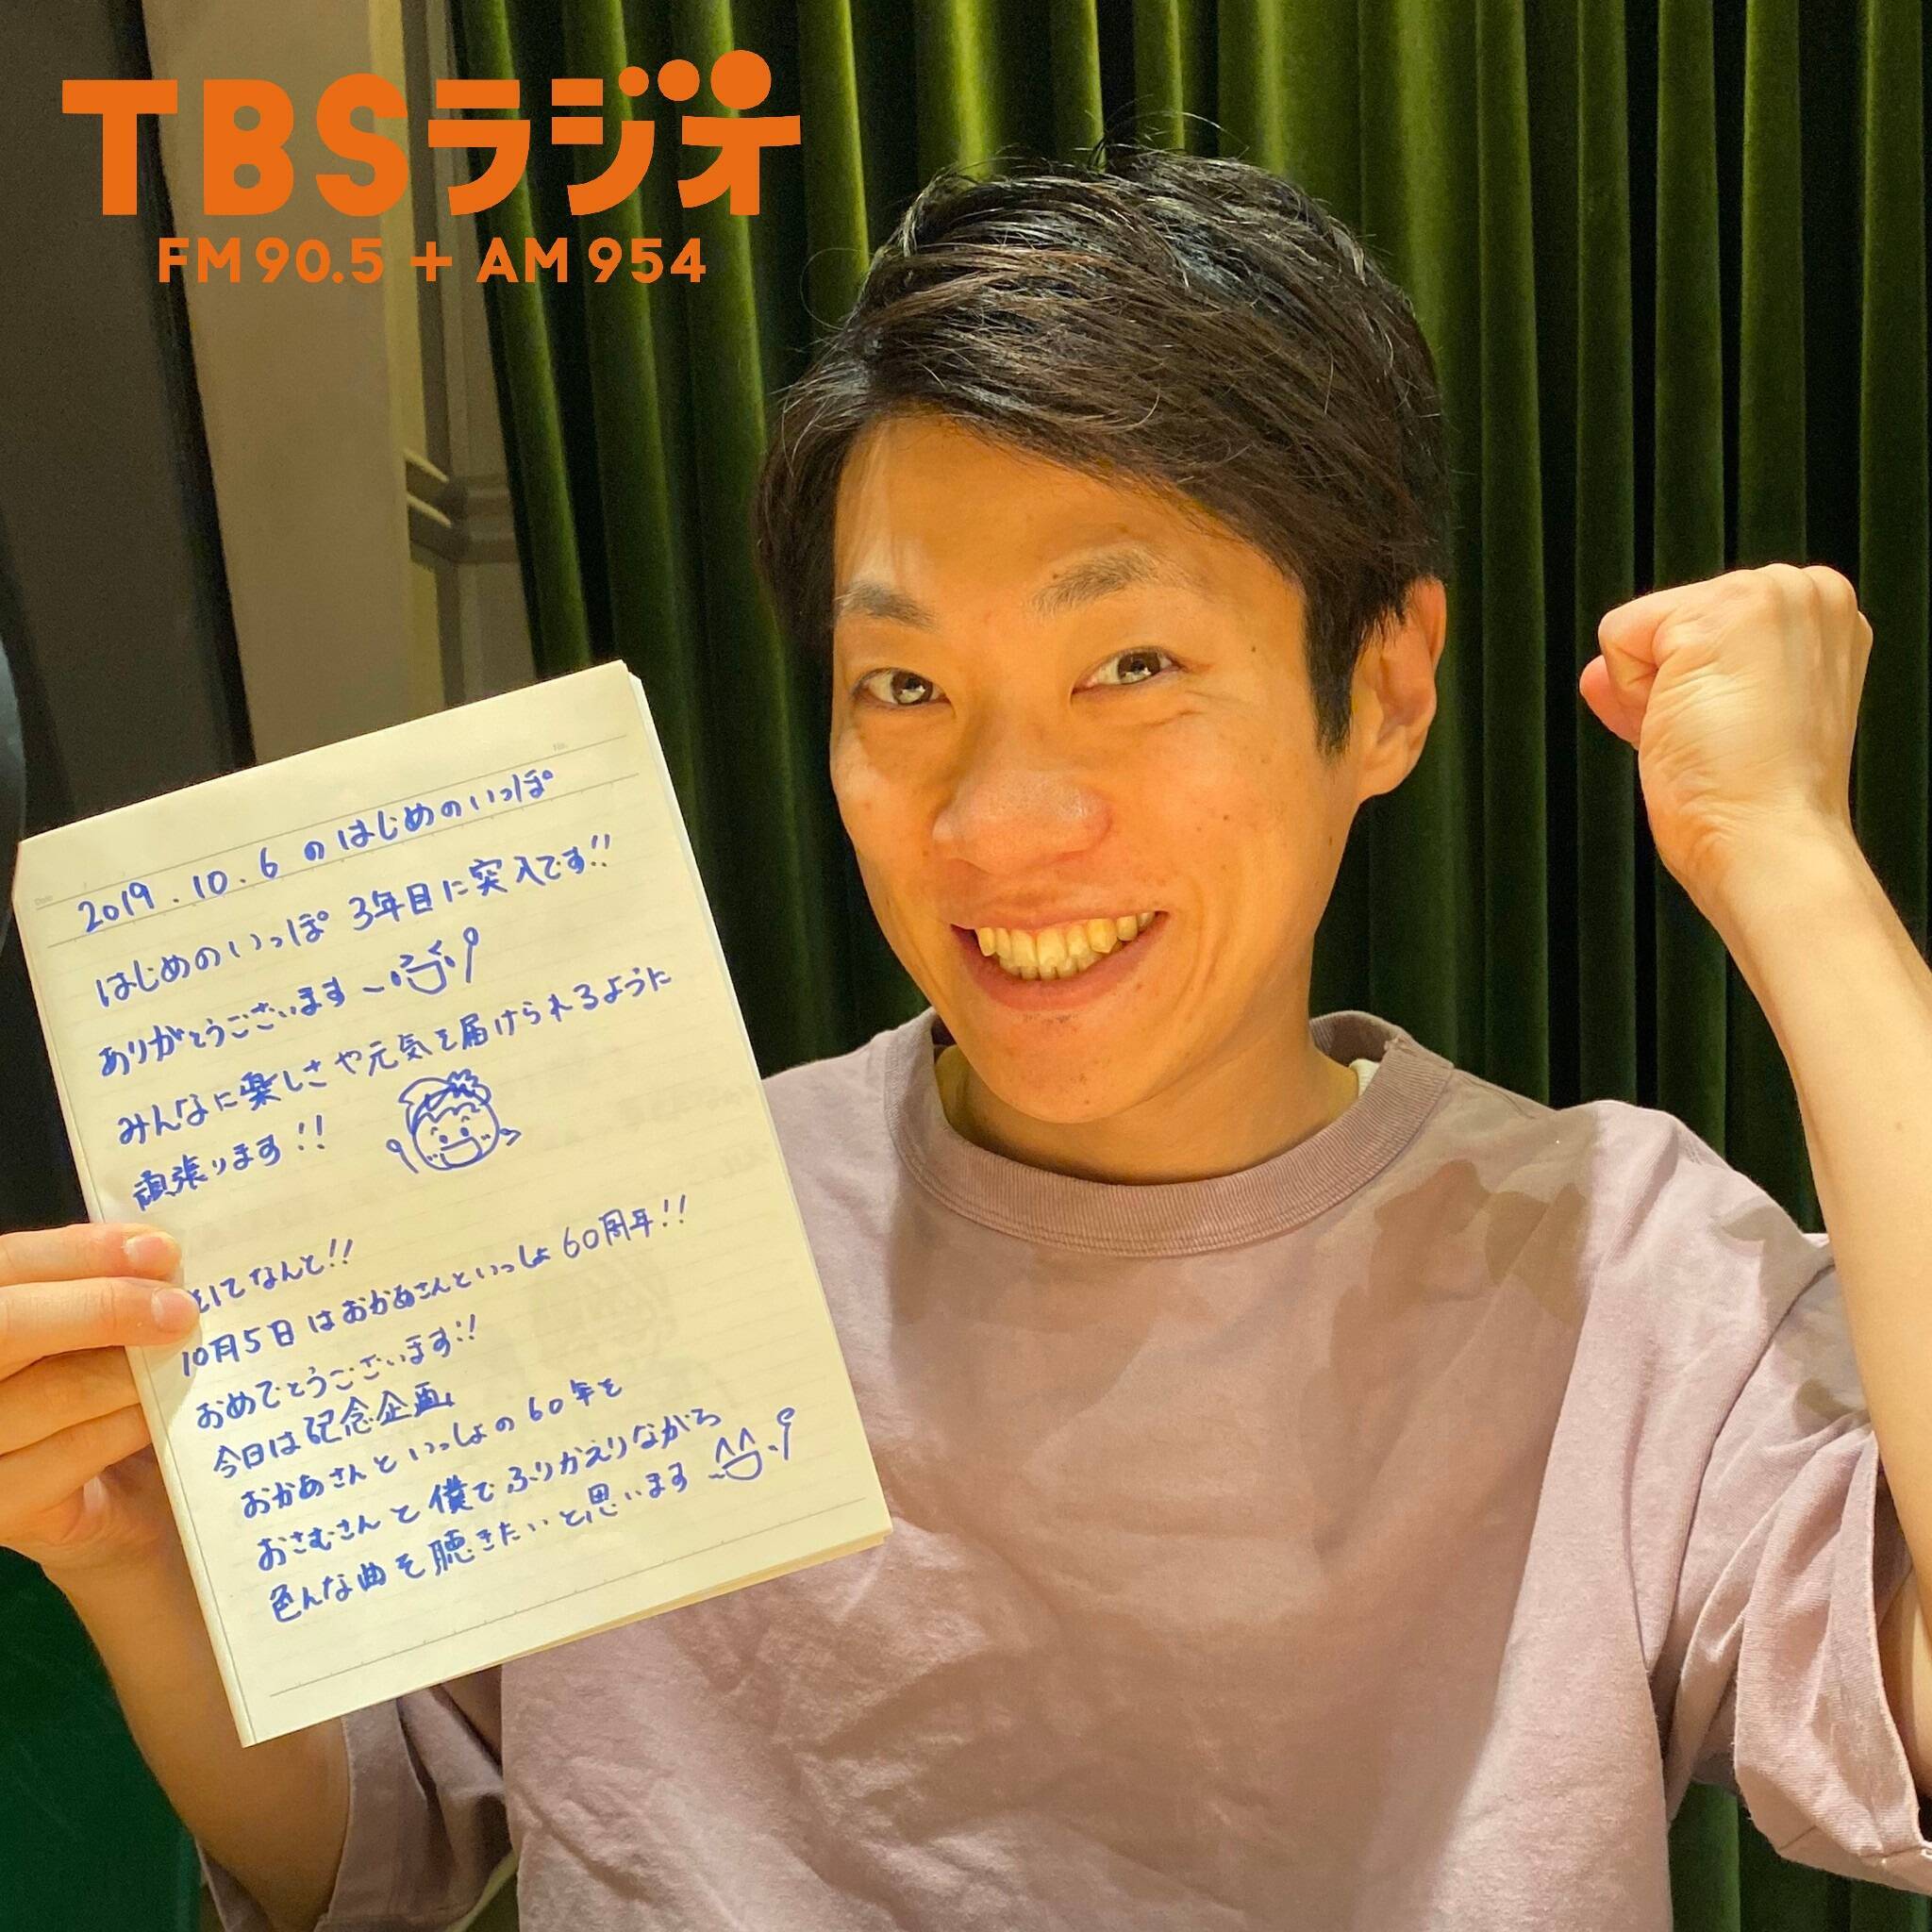 TBSラジオ
FM90.5 + AM954
2019.10.6 のはじめのいっぽ
はじめのいっぽ 3年目に突入です!!
ありがとうございます〜
みんなに楽しさや元気を届けられるように
頑張ります!!
そしてなんと!!
10月5日はおかあさんといっしょ60周年!!
おめでとうございます!!
今日は記念企画、
おかあさんといっしょの60年を
おさむさんと僕でふりかえりながら
色んな曲を聴きたいと思います